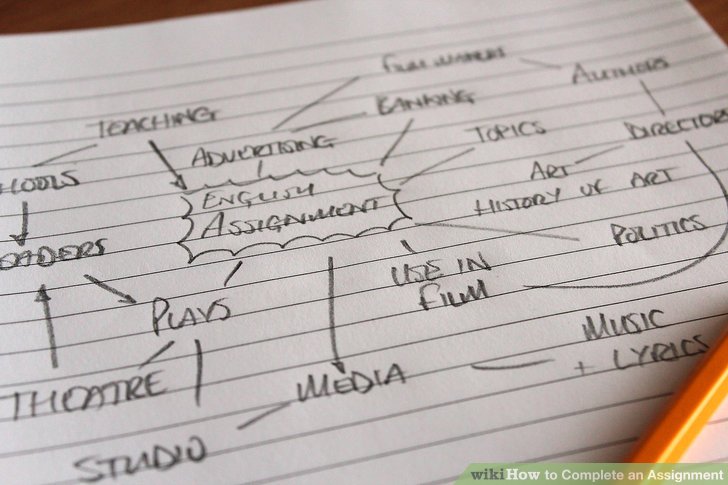 FILM
AUTHORS
BANKING
TEACHING
TOPICS
DIRECTOR
ADVERTISING
HOOLS
ENGLISH
ASSIGNMENT
ART
HISTORY OF ART
POLITICS
EADERS
USE IN
FILM
PLAYS
MUSIC
+ LYRICS
THEATRE
MEDIA
STUDIO
wikiHow to Complete an Assignment